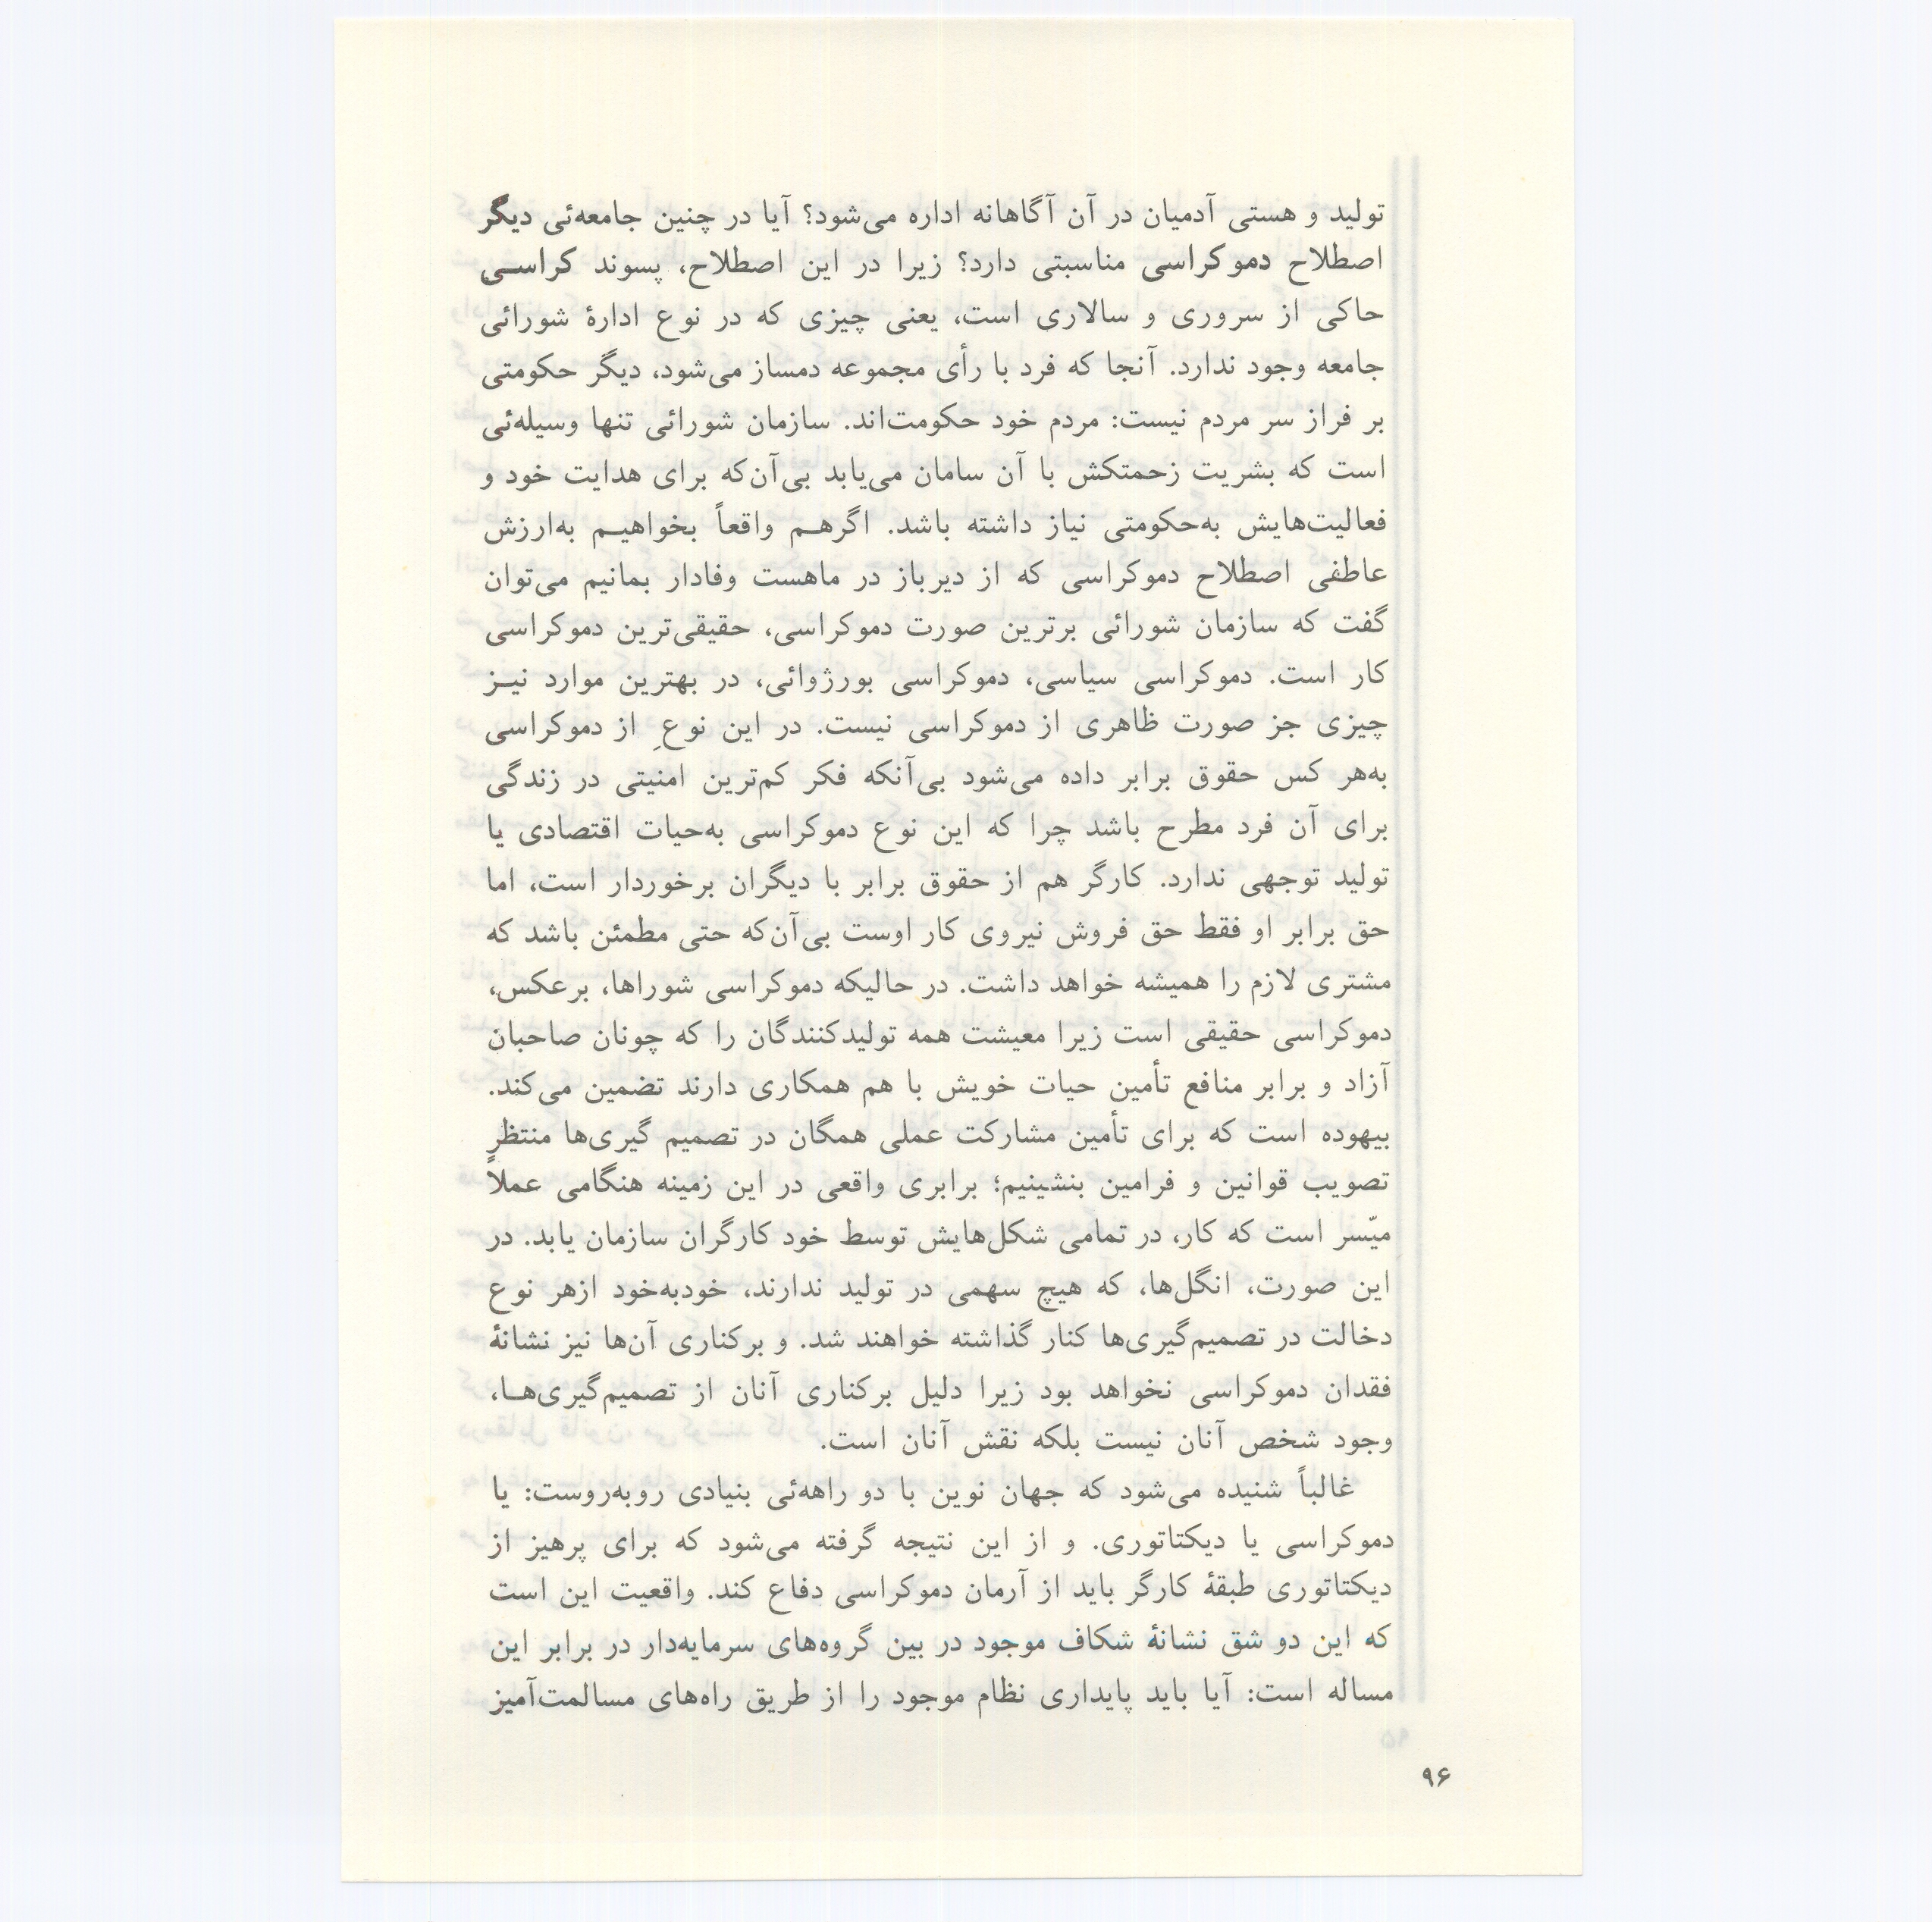 تولید و هستی آدمیان در آن آگاهانه اداره می‌شود؟ آیا در چنین جامعه‌ئی دیگر
اصطلاح دموکراسی مناسبتی دارد؟ زیرا در این اصطلاح، پسوند کراسـی
حاکی از سروری و سالاری است، یعنی چیزی که در نوع ادارهٔ شورائی
جامعه وجود ندارد. آنجا که فرد با رأی مجموعه دمساز می‌شود، دیگر حکومتی
بر فراز سر مردم نیست: مردم خود حکومت‌اند. سازمان شورائی تنها وسیله‌ئی
است که بشریت زحمتکش با آن سامان می‌یابد بی‌آن‌که برای هدایت خود و
فعالیت‌هایش به‌حکومتی نیاز داشته باشد. اگرهـم واقعاً بخواهیـم به‌ارزش
عاطفی اصطلاح دموکراسی که از دیرباز در ماهست وفادار بمانیم می‌توان
گفت که سازمان شورائی برترین صورت دموکراسی، حقیقی‌ترین دموکراسی
کار است. دموکراسی سیاسی، دموکراسی بورژوائی، در بهترین موارد نیـز
چیزی جز صورت ظاهری از دموکراسی نیست. در این نوعِ از دموکراسی
به‌هر کس حقوق برابر داده می‌شود بی‌آنکه فکر کم‌ترین امنیتی در زندگی
برای آن فرد مطرح باشد چرا که این نوع دموکراسی به‌حیات اقتصادی یا
تولید توجهی ندارد. کارگر هم از حقوق برابر با دیگران برخوردار است، اما
حق برابر او فقط حق فروش نیروی کار اوست بی‌آن‌که حتی مطمئن باشد که
مشتری لازم را همیشه خواهد داشت. در حالیکه دموکراسی شوراها، برعکس،
دموکراسی حقیقی است زیرا معیشت همه تولیدکنندگان را که چونان صاحبان
آزاد و برابر منافع تأمین حیات خویش با هم همکاری دارند تضمین می‌کند.
بیهوده است که برای تأمین مشارکت عملی همگان در تصمیم گیری‌ها منتظرِ
تصویب قوانین و فرامین بنشینیم؛ برابری واقعی در این زمینه هنگامی عملاً
میّسر است که کار، در تمامی شکل‌هایش توسط خود کارگران سازمان یابد. در
این صورت، انگل‌ها، که هیچ سهمی در تولید ندارند، خودبه‌خود ازهر نوع
دخالت در تصمیم‌گیری‌ها کنار گذاشته خواهند شد. و برکناری آن‌ها نیز نشانهٔ
فقدان دموکراسی نخواهد بود زیرا دلیل برکناری آنان از تصمیم‌گیری‌هـا،
وجود شخص آنان نیست بلکه نقش آنان است.
غالباً شنیده می‌شود که جهان نوین با دو راهه‌ئی بنیادی روبه‌روست: یا
دموکراسی یا دیکتاتوری. و از این نتیجه گرفته می‌شود که برای پرهیز از
دیکتاتوری طبقهٔ کارگر باید از آرمان دموکراسی دفاع کند. واقعیت این است
که این دو شق نشانهٔ شکاف موجود در بین گروه‌های سرمایه‌دار در برابر این
مساله است: آیا باید پایداری نظام موجود را از طریق راه‌های مسالمت‌آمیز
۹۶